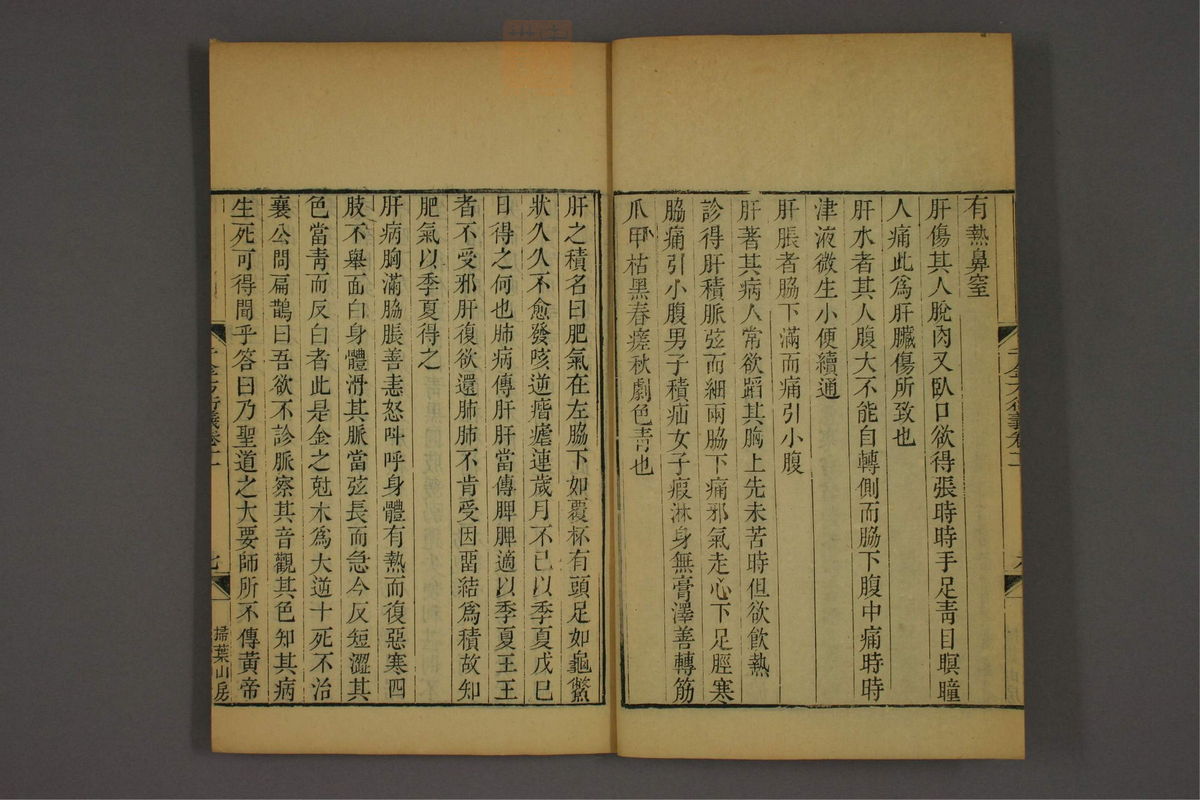 有熱鼻窒
肝傷其人脫肉又臥口欲得張時時手足青目瞑瞳
人痛此爲肝臟傷所致也
肝水者其人腹大不能自轉側而脇下腹中痛時時
津液微生小便續通
肝脹者脇下滿而痛引小腹
肝著其病人常欲蹈其胸上先未苦時但欲飮熱
診得肝積脈弦而細兩脇下痛邪氣走心下足脛寒
脇痛引小腹男子積疝女子瘕淋身無膏澤善轉筋
爪甲枯黑春瘥秋劇色靑也
肝之積名曰肥氣在左脇下如覆杯有頭足如龜鱉
狀久久不愈發咳逆㾬瘧連歲月不已以季夏戊巳
日得之何也肺病傳肝肝當傳脾脾適以季夏王王
者不受邪肝復欲還肺肺不肯受因留結爲積故知
肥氣以季夏得之
肝病胸滿脇脹善恚怒呌呼身體有熱而復惡寒四
肢不舉面白身體滑其脈當弦長而急今反短澀其
色當靑而反白者此是金之尅木爲大逆十死不治
襄公問扁鵲曰吾欲不診脈察其音觀其色知其病
生死可得聞乎答曰乃聖道之大要師所不傳黃帝
千金方衍義卷十一
七
掃葉山房